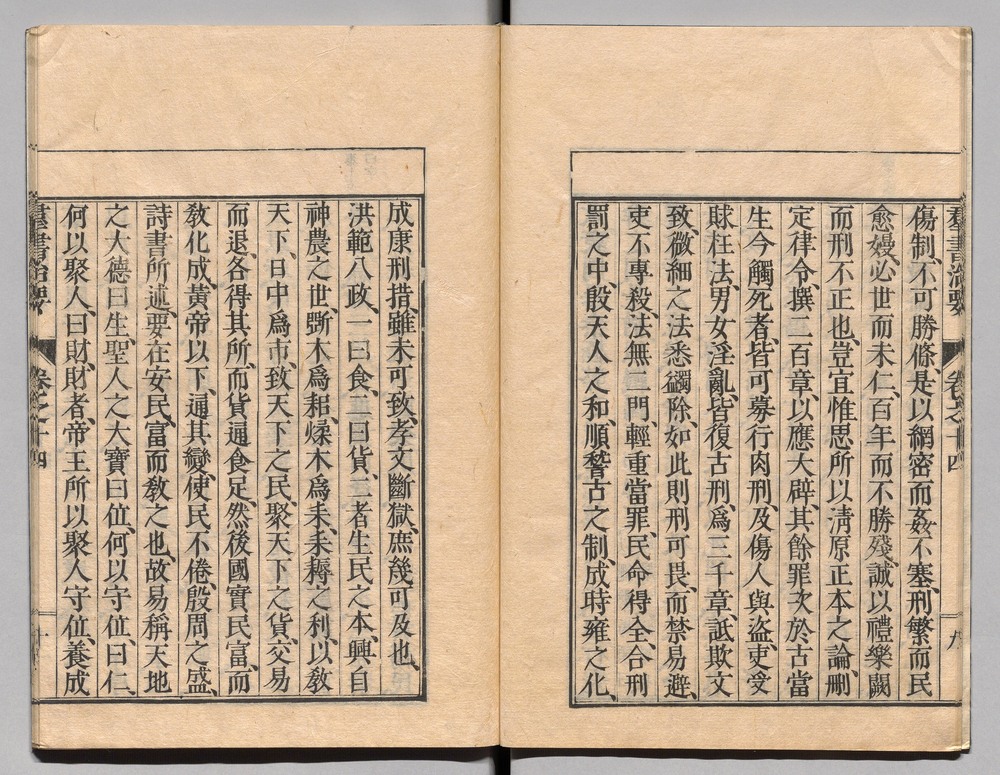 羣書治要　卷之十四　九
傷制、不可勝條、是以網密而姦不塞、刑繁而民
愈嫚、必世而未仁、百年而不勝殘、誠以禮樂闕
而刑不正也、豈宜惟思所以淸原正本之論、刪
定律令、撰二百章、以應大辟、其餘罪次、於古當
生、今觸死者、皆可募行肉刑、及傷人與盜、吏受
賕枉法、男女淫亂、皆復古刑、爲三千章、詆欺文
致微細之法、悉蠲除、如此則刑可畏、而禁易避、
吏不專殺、法無二門、輕重當罪、民命得全、合刑
罰之中、殷天人之和、順稽古之制、成時雍之化、
成康刑措、雖未可致、孝文斷獄、庶幾可及也、
洪範八政、一曰食、二曰貨、二者生民之本、興自
神農之世、斲木爲耜、煣木爲耒、耒耨之利、以敎
天下、日中爲市、致天下之民、聚天下之貨、交易
而退、各得其所、而貨通食足、然後國實民富、而
敎化成、黃帝以下、通其變、使民不倦、殷周之盛、
詩書所述、要在安民、富而敎之也、故易稱天地
之大德曰生、聖人之大寶曰位、何以守位、曰仁、
何以聚人、曰財、財者、帝王所以聚人守位、養成
羣書治要　卷之十四　十